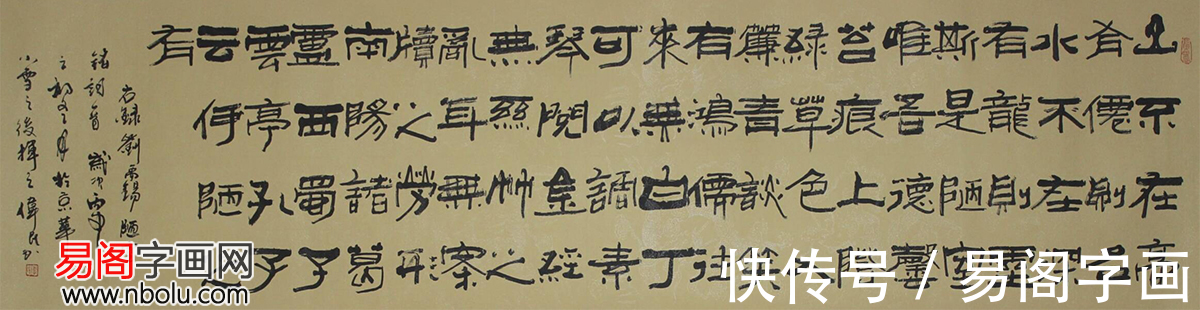 山不在高
有僊則名
水不在深
有龍則靈
斯是陋室
唯吾德馨
苔痕上階
緑草色入
簾青談笑
有鴻儒往
來無白丁
可以調素
琴閱金經
無絲竹之
亂耳無案
牘之勞形
南陽諸葛
盧西蜀子
雲亭孔子
云何陋之
有
右録劉禹錫陋
銘詞 歲次丙申
之初 月於京華
小雪之後揮之偉
易阁字画网
www.nbolu.com
快传号 / 易阁字画